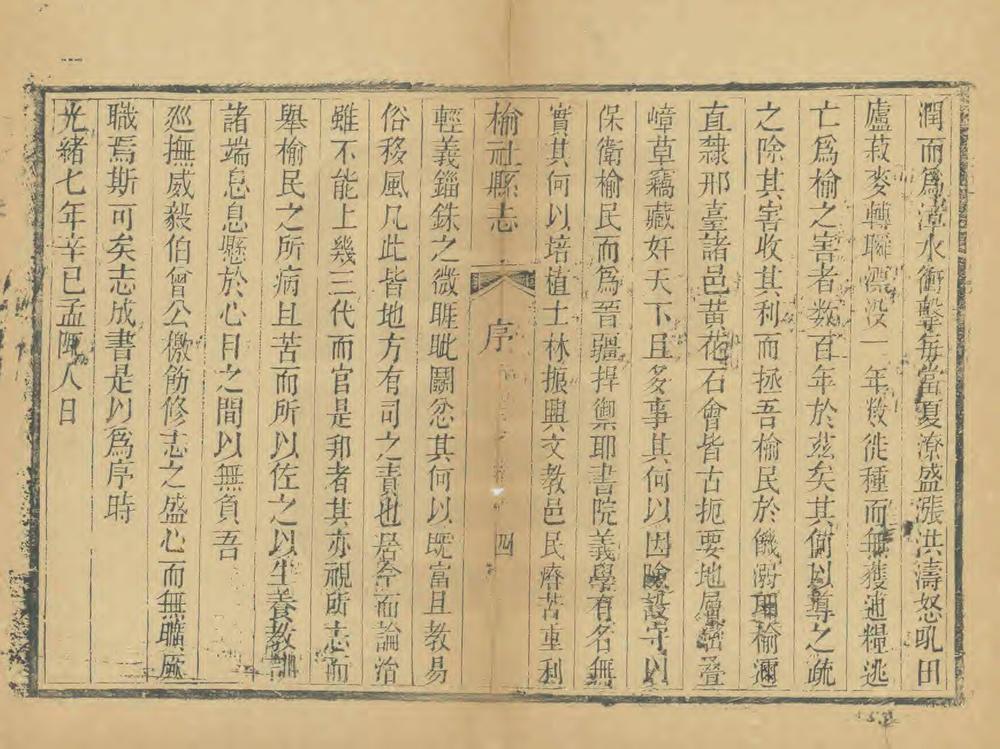 潤而爲漳水衝擊每當夏潦盛漲洪濤怒吼田
廬菽麥轉瞬漂沒一年數徙種而無獲逋糧逃
亡爲榆之害者数百年於茲矣其何以導之疏
之除其害收其利而拯吾榆民於饑溺耶榆邇
直隸邢臺諸邑黃花石會皆古扼要地層巒疊
嶂草竊藏奸天下且多事其何以因險設守以
保衛榆民而爲晉疆捍禦耶書院義學有名無
實其何以培植士林振興文教邑民瘠苦重利
榆社縣志
序
四
輕義錙銖之微睚眦鬭忿其何以旣富且教易
俗移風凡此皆地方有司之責也居今而論治
雖不能上幾三代而官是邦者其亦視所志而
舉榆民之所病且苦而所以佐之以生養教訓
諸端息息懸於心目之間以無負吾
廵撫威毅伯曾公檄飭修志之盛心而無曠厥
職焉斯可矣志成書是以爲序時
光緒七年辛巳孟陬人日